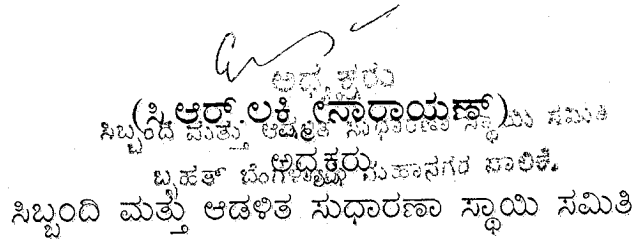 ಅಧ್ಯಕ್ಷರು
(ಸಿ.ಆರ್.ಲಕ್ಷ್ಮೀನಾರಾಯಣ್)
ಸಿಬ್ಬಂದಿ ಮತ್ತು ಆಡಳಿತ ಸುಧಾರಣಾ ಸ್ಥಾಯಿ ಸಮಿತಿ
ಅಧ್ಯಕ್ಷರು
ಬೃಹತ್ ಬೆಂಗಳೂರು ಮಹಾನಗರ ಪಾಲಿಕೆ.
ಸಿಬ್ಬಂದಿ ಮತ್ತು ಆಡಳಿತ ಸುಧಾರಣಾ ಸ್ಥಾಯಿ ಸಮಿತಿ